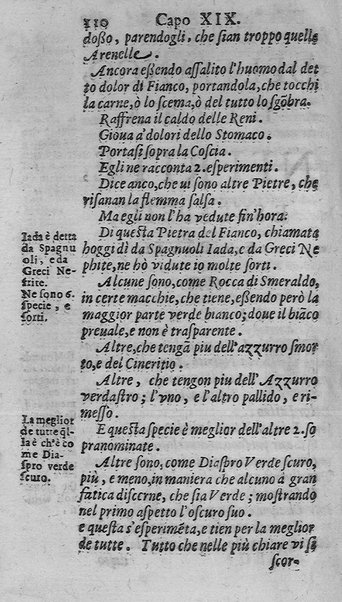 110 Capo XIX.
doßo, parendogli, che sian troppo quelle
Arenelle.
Ancora eßendo assalito l'huomo dal det
to dolor di Fianco, portandola, che tocchi
la carne, ò lo scema, ò del tutto lo sgōbra.
Raffrena il caldo delle Reni.
Gioua a' dolori dello Stomaco.
Portasi sopra la Coscia.
Egli ne racconta 2. esperimenti.
Dice anco, che ui sono altre Pietre, che
risanan la flemma salsa.
Ma egli non l'ha vedute fin'hora.
Di questa Pietra del Fianco, chiamata
hoggi dì da Spagnuoli Iada, e da Greci Ne
phite, ne hò vidute io molte sorti.
Alcune sono, come Rocca di Smeraldo,
in certe macchie, che tiene, eßendo però la
maggior parte verde bianco; doue il biāco
preuale, e non è trasparente.
Altre, che tengā piu dell'azzurro smor
to, e del Cineritio.
Altre, che tengon piu dell'Azzurro
verdastro; l'vno, e l'altro pallido, e ri-
messo.
E questa specie è meglior dell'altre 2. so
pranominate.
Altre sono, come Diaspro Verde scuro,
più, e meno, in maniera che alcuno à gran
fatica discerne, che sia Verde; mostrando
nel primo aspetto l'oscuro suo.
e questa s'esperimēta, e tien per la meglior
de tutte. Tutto che nelle più chiare vi si
scor-
Iada è detta
da Spagnu
oli, e da
Greci Ne-
frite.
Ne sono 6.
specie, e
sorti.
La meglior
de tutte q̄l-
la è ch'è co
me Dia-
spro verde
scuro.